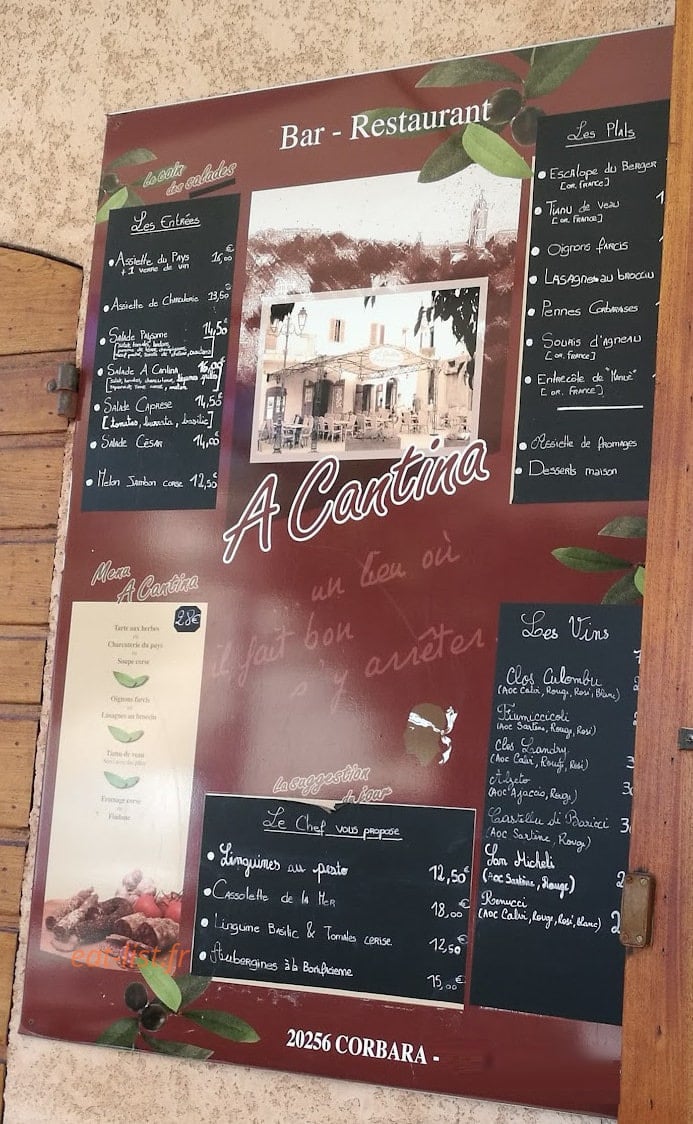 Bar - Restaurant
Le coin
des salades
Les Entrées
Assiette du Pays 16,00€
+ 1 verre de vin
Assiette de Charcuterie 13,50
Salade Paysanne 14,50
Salade A Cantina 16,00
Salade Caprese 14,50
[tomates, burrata, basilic]
Salade César 14,00
Melon Jambon corse 12,50
Les Plats
Escalope du Berger
[or. France]
Tianu de veau
[or. France]
Oignons farcis
Lasagnes au brocciu
Pennes Corbaraises
Souris d'agneau
[or. France]
Entrecôte de "Manue"
[or. France]
Assiette de fromages
Desserts maison
A Cantina
un lieu où
il fait bon
s'y arrêter
Menu
A Cantina
28€
Tarte aux herbes
ou
Charcuterie du pays
ou
Soupe corse
Oignons farcis
ou
Lasagnes au brocciu
ou
Tianu de veau
Fromage corse
ou
Fiadone
Les Vins
Clos Culombu
(Aoc Calvi, Rouge, Rosé, Blanc)
Fiumiccicoli
(Aoc Sartène, Rouge, Rosé)
Clos Landry
(Aoc Calvi, Rouge, Rosé)
Alzeto
(Aoc Ajaccio, Rouge)
Castellu di Baricci
(Aoc Sartène, Rouge)
San Micheli
(Aoc Sartène, Rouge)
Renucci
(Aoc Calvi, Rouge, Rosé, Blanc)
La suggestion
du jour
Le Chef vous propose
Linguines au pesto 12,50€
Cassolette de la Mer 18,00€
Linguine Basilic & Tomates cerise 12,50€
Aubergines à la Bonifacienne 15,00€
eat-list.fr
20256 CORBARA -